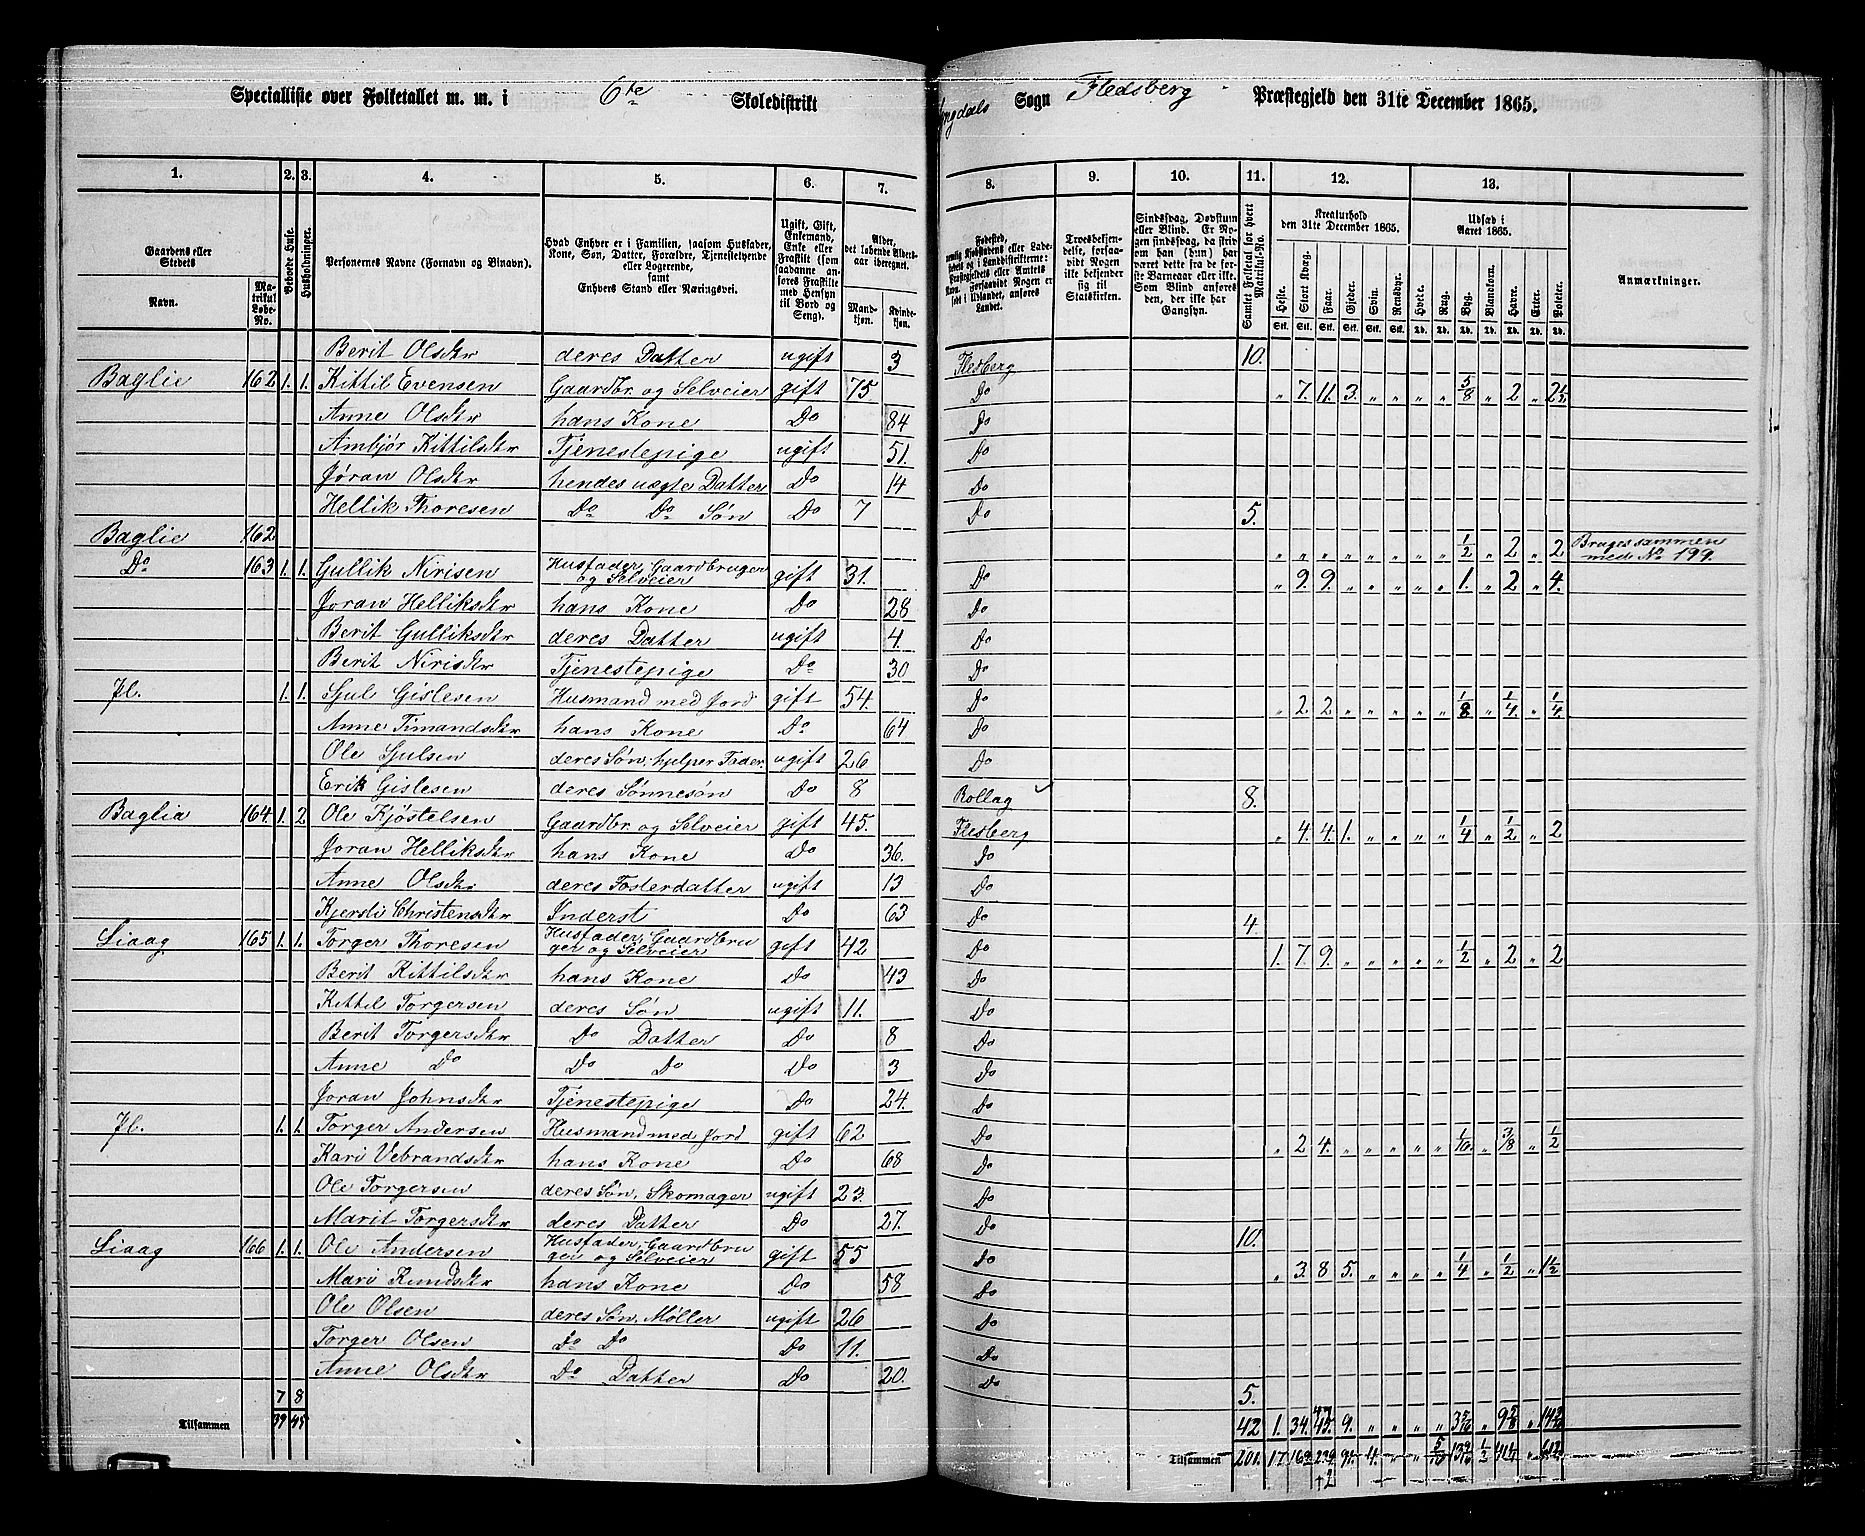 Specialliste over Folketallet m. m. i 6te Skoledistrikt Sogn Flesberg Præstegjeld den 31te December 1865.
1. 2. 3. 4. 5. 6. 7. 8. 9. 10. 11. 12. 13.
Gaardens eller Stedets
Navn.
Matrikul Løbe-No.
Beboede Huse.
Husholdninger.
Personernes Navne (Fornavn og Binavn).
Hvad Enhver er i Familien, saasom Husfader, Kone, Søn, Datter, Forældre, Tjenestetyende eller Logerende, samt Enhvers Stand eller Næringsvei.
Ugift, Gift, Enkemand, Enke eller Fraskilt (som saadanne ansøres Fraskilte med Hensyn til Bord og Seng).
Alder, det løbende Aldersaar iberegnet.
Mandkjøn. Kvindekjøn.
Fødested,
Troesbekjendelse, forsaavidt Nogen ikke bekjender sig til Statskirken.
Sindssvag, Døvstum eller Blind. Er Nogen sindssvag, da strid om han (hun) har været dette fra de første Barneaar eller ikke. Som Blind anføres den, der ikke har Gangsyn.
Samlet Folketal for hvert Matrikul-No.
Kreaturhold den 31te December 1865.
Heste. Stort Kvæg. Faar. Gjeder. Svin. Rensdyr.
Udsæd i Aaret 1865.
Hvede. Rug. Byg. Blandkorn. Havre. Erter. Poteter.
Anmærkninger.
Berit Olsdtr deres Datter ugift 3 Flesberg 10.
Baglie 162 1. 1. Kittil Evensen Gaardbr. og Selveier gift 75. Do " 7. 11. 3. " " " " 5/8 " 2 " 2½
Anne Olsdtr hans Kone Do 84 Do
Ambjør Kittilsdtr Tjenestepige ugift 51. Do
Jøran Olsdtr hendes uægte Datter Do 14 Do
Hellik Thoresen Do Do Søn Do 7 Do 5.
Baglie 162 " " " " " " " " 1/2 " 2 " 2 Bruges sammen med No 199.
Do 163 1. 1. Gullik Nirisen Husfader, Gaardbruger og Selveier gift 31. Do " 9. 9. " " " " " 1. " 2 " 4.
Joran Helliksdtr hans Kone Do 28 Do
Berit Gulliksdtr deres Datter ugift 4. Do
Berit Nirisdtr Tjenestepige Do 30 Do
Pl. 1. 1. Gul Gislesen Husmand med Jord gift 54. Do " 2. 2. " " " " " 1/8 " 1/4 " 1/4
Anne Timandsdtr hans Kone Do 64 Do
Ole Gulsen deres Søn, hjelper Fader ugift 26 Do
Erik Gislesen deres Sønnesøn Do 8 Rollag 8.
Baglia 164. 1. 2 Ole Kjøstelsen Gaardbr. og Selveier gift 45. Flesberg " 4. 4. 1. " " " " 1/4 " 1/2 " 2
Joran Helliksdtr hans Kone Do 36. Do
Anne Olsdtr deres Fosterdatter ugift 13 Do
Kjersti Christensdtr Inderst Do 63 Do 4.
Liaag 165 1. 1. Torger Thoresen Husfader, Gaardbruger og Selveier gift 42 Do 1. 7. 9. " " " " " 1/2 " 2 " 2
Berit Kittilsdtr hans Kone Do 43 Do
Kittil Torgersen deres Søn ugift 11. Do
Berit Torgersdtr Do Datter Do 8 Do
Anne Do Do Do Do 3 Do
Joran Johnsdtr Tjenestepige Do 24. Do
Pl. 1. 1. Torger Andersen Husmand med Jord gift 62 Do " 2 4. " " " " " 1/16 " 3/8 " 1/2
Kari Vebrandsdtr hans Kone Do 68 Do
Ole Torgersen deres Søn, Skomager ugift 23. Do
Marit Torgersdtr deres Datter Do 27. Do 10.
Liaag 166 1. 1. Ole Andersen Husfader, Gaardbruger og Selveier gift 55 Do " 3. 8 5. " " " " 1/4 " 1/2 " 1½
Mari Knudsdtr hans Kone Do 58 Do
Ole Olsen deres Søn, Møller ugift 26 Do
Torger Olsen Do Do Do 11. Do
Anne Olsdtr Do Datter Do 20. Do 5.
7 8
Tilsammen 39 45 42 1. 34. 9.
Tilsammen 201. 17